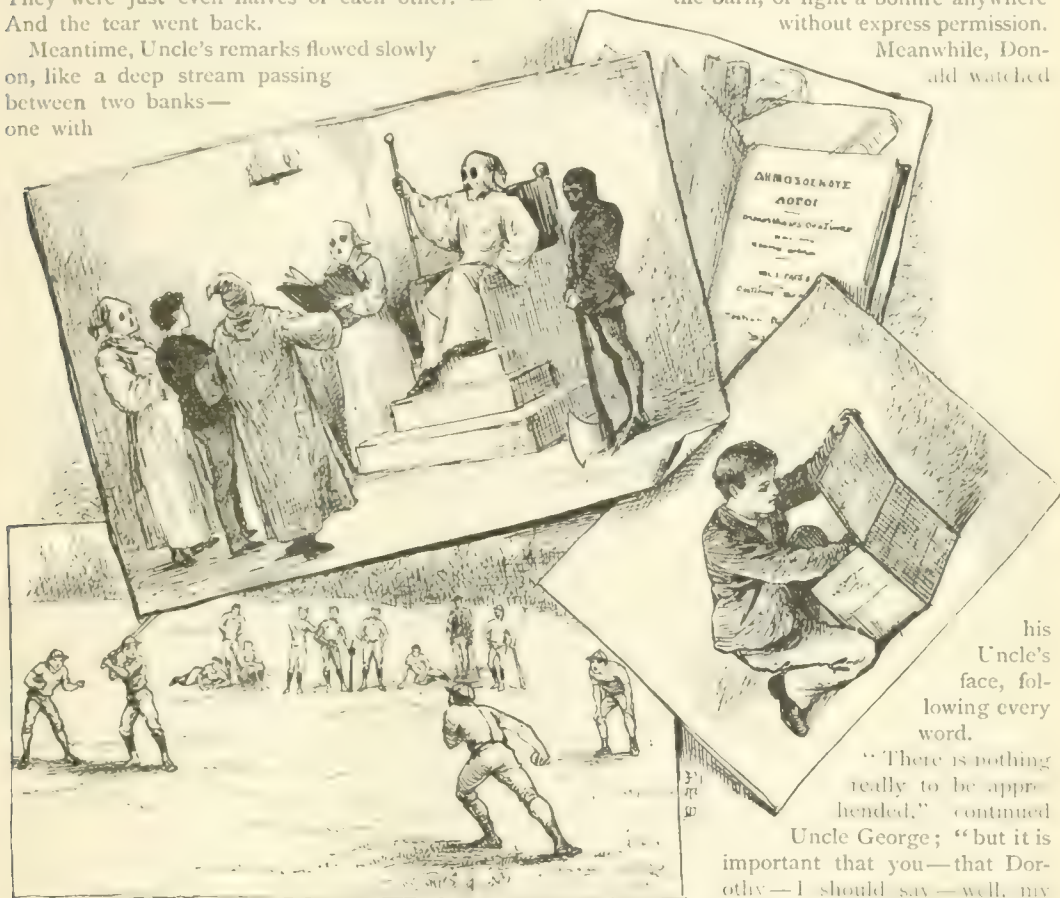 They were just even halves of each other.
And the tear went back.
Meantime, Uncle's remarks flowed slowly
on, like a deep stream passing
between two banks—
one with
the barn, or light a bonfire anywhere
without express permission.
Meanwhile, Don-
ald watched
ΛΟΓΟΙ
his
Uncle's
face, fol-
lowing every
word.
"There is nothing
really to be appre-
hended," continued
Uncle George; "but it is
important that you—that Dor-
othy—I should say—well, my